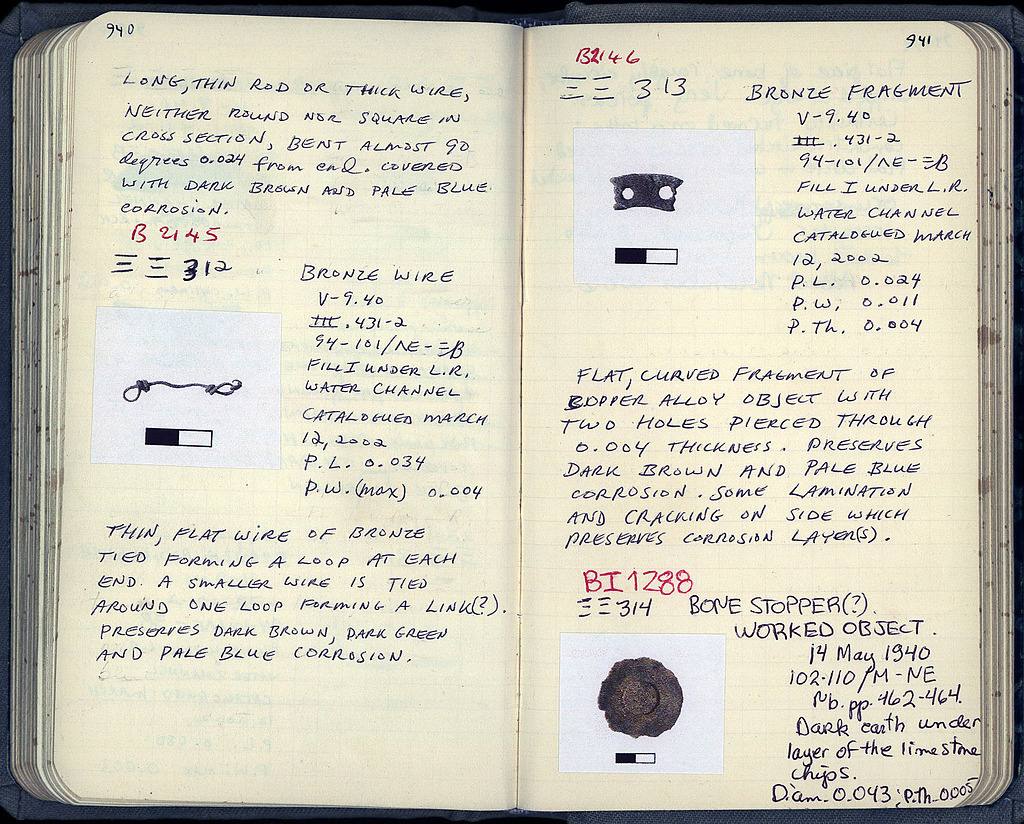 940
LONG, THIN ROD OR THICK WIRE,
NEITHER ROUND NOR SQUARE IN
CROSS SECTION, BENT ALMOST 90
degrees 0.024 from end. COVERED
WITH DARK BROWN AND PALE BLUE
CORROSION.
B 2145
ΞΞ 312
BRONZE WIRE
V-9.40
III.431-2
94-101/NE-ΞB
FILL I UNDER L.R.
WATER CHANNEL
CATALOGUED MARCH
12, 2002
P.L. 0.034
P.W. (max) 0.004
THIN, FLAT WIRE OF BRONZE
TIED FORMING A LOOP AT EACH
END. A SMALLER WIRE IS TIED
AROUND ONE LOOP FORMING A LINK(?).
PRESERVES DARK BROWN, DARK GREEN
AND PALE BLUE CORROSION.
941
B2146
ΞΞ 313
BRONZE FRAGMENT
V-9.40
III.431-2
94-101/NE-ΞB
FILL I UNDER L.R.
WATER CHANNEL
CATALOGUED MARCH
12, 2002
P.L. 0.024
P.W. 0.011
P.Th. 0.004
FLAT, CURVED FRAGMENT OF
COPPER ALLOY OBJECT WITH
TWO HOLES PIERCED THROUGH
0.004 THICKNESS. PRESERVES
DARK BROWN AND PALE BLUE
CORROSION. SOME LAMINATION
AND CRACKING ON SIDE WHICH
PRESERVES CORROSION LAYER(S).
BI1288
ΞΞ 314 BONE STOPPER(?).
WORKED OBJECT.
14 May 1940
102-110/M-NE
Nb. pp. 462-464.
Dark earth under
layer of the limestone
chips.
Diam. 0.043; P.Th. 0.005